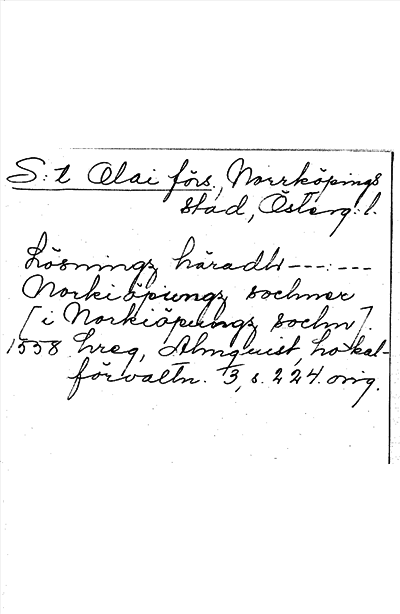 S:t Olai förs., Norrköpings
stad, Österg:l.
Lösningz häradh ---:---
Norkiöpungz sochner
[i Norkiöpungz sochn].
1558 hreg, Almquist, Lokal-
förvaltn. 3, s. 224. orig.